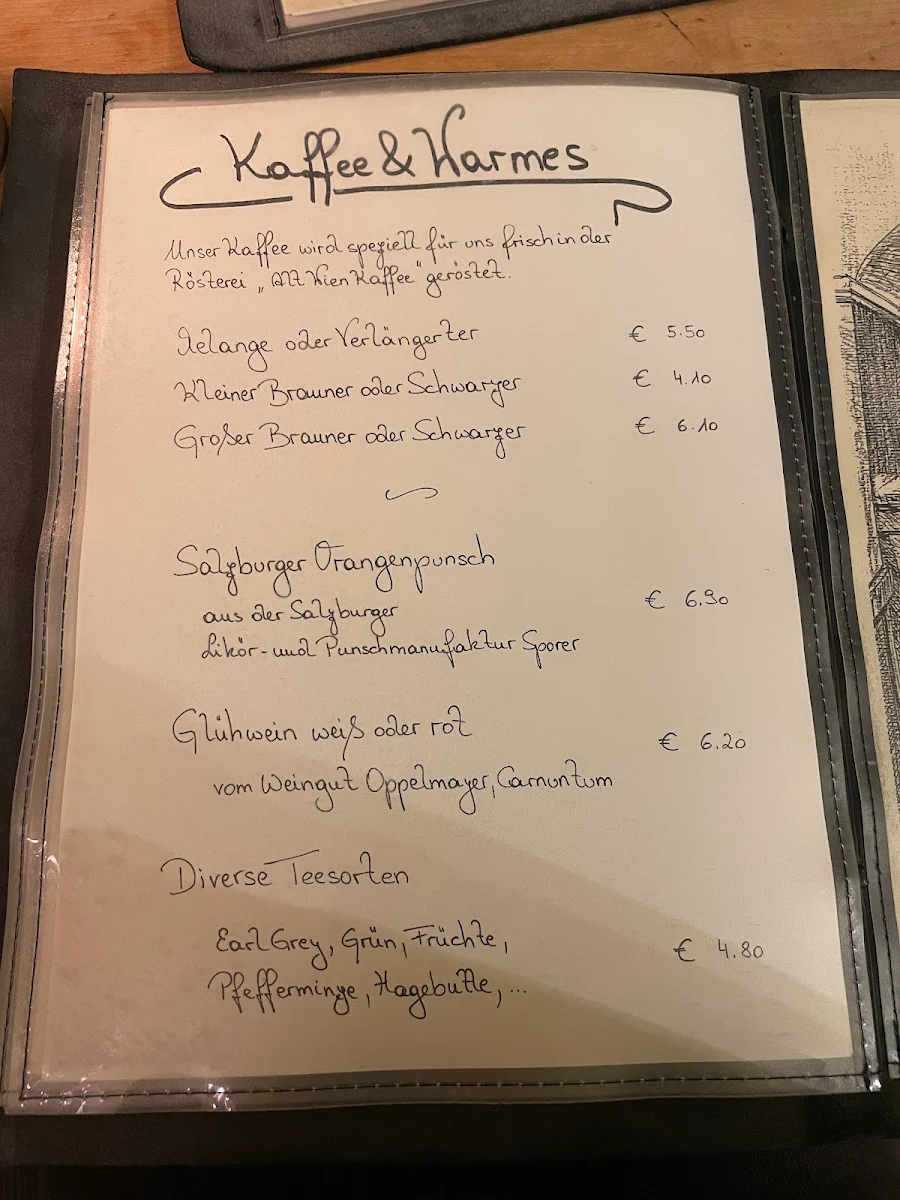 Kaffee & Warmes
Unser Kaffee wird speziell für uns frisch in der
Rösterei „Alt Wien Kaffee" geröstet.
Melange oder Verlängerter € 5.50
Kleiner Brauner oder Schwarzer € 4.10
Großer Brauner oder Schwarzer € 6.10
Salzburger Orangenpunsch
aus der Salzburger € 6.90
Likör- und Punschmanufaktur Sporer
Glühwein weiß oder rot € 6.20
vom Weingut Oppelmayer, Carnuntum
Diverse Teesorten
Earl Grey, Grün, Früchte, € 4.80
Pfefferminze, Hagebutte, ...